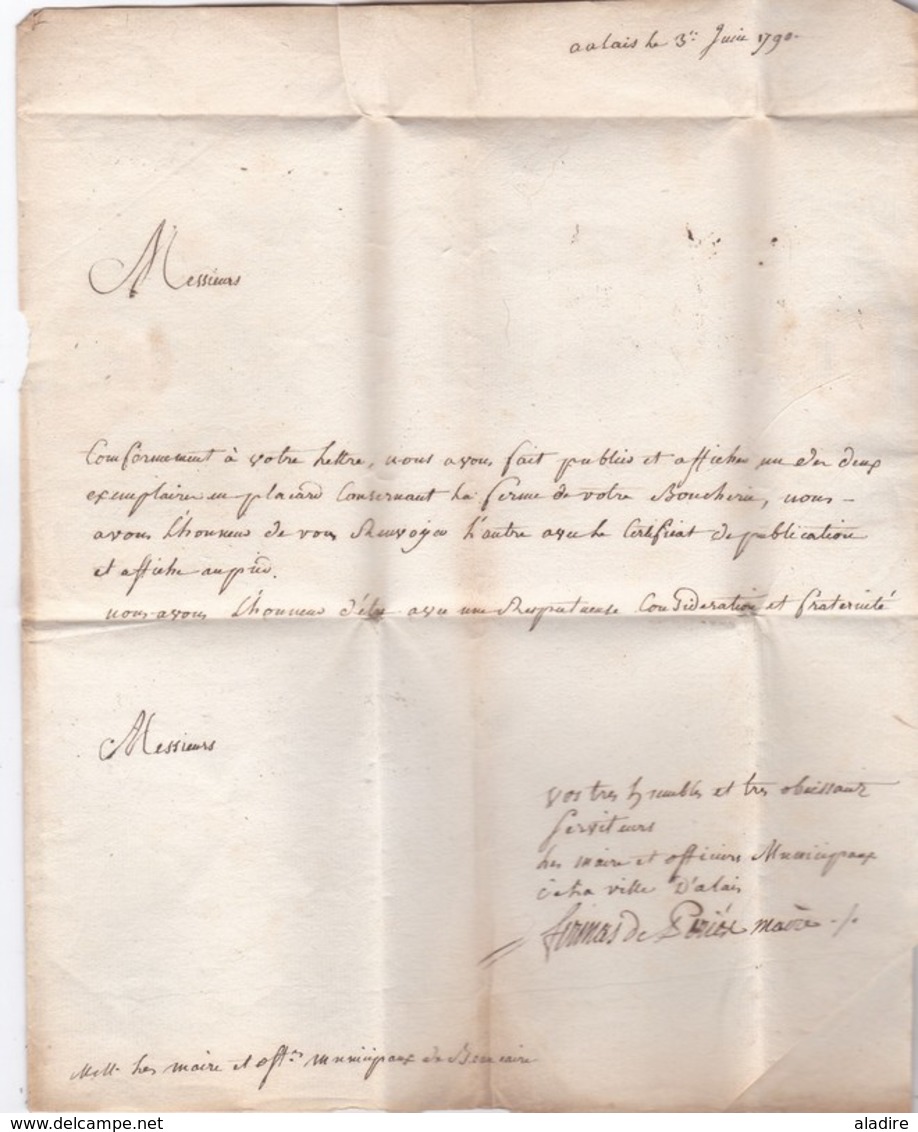 a alais le 3e. Juin 1790.
Messieurs
Conformement à votre lettre, nous avons fait publier et afficher un des deux
exemplaires en placard Consernant La ferme de votre Boucherie, nous
avons L'honneur de vous Renvoyer L'autre avec le Certificat de publication
et affiche au pied.
nous avons L'honneur d'être avec une Respectueuse Consideration et fraternité
Messieurs
vos tres humbles et tres obeissants
serviteurs
Les maire et officiers Municipaux
de la ville D'alais
firmas de Periés maire
MM. Les maire et offers municipaux de Beaucaire
delcampe.net
aladire